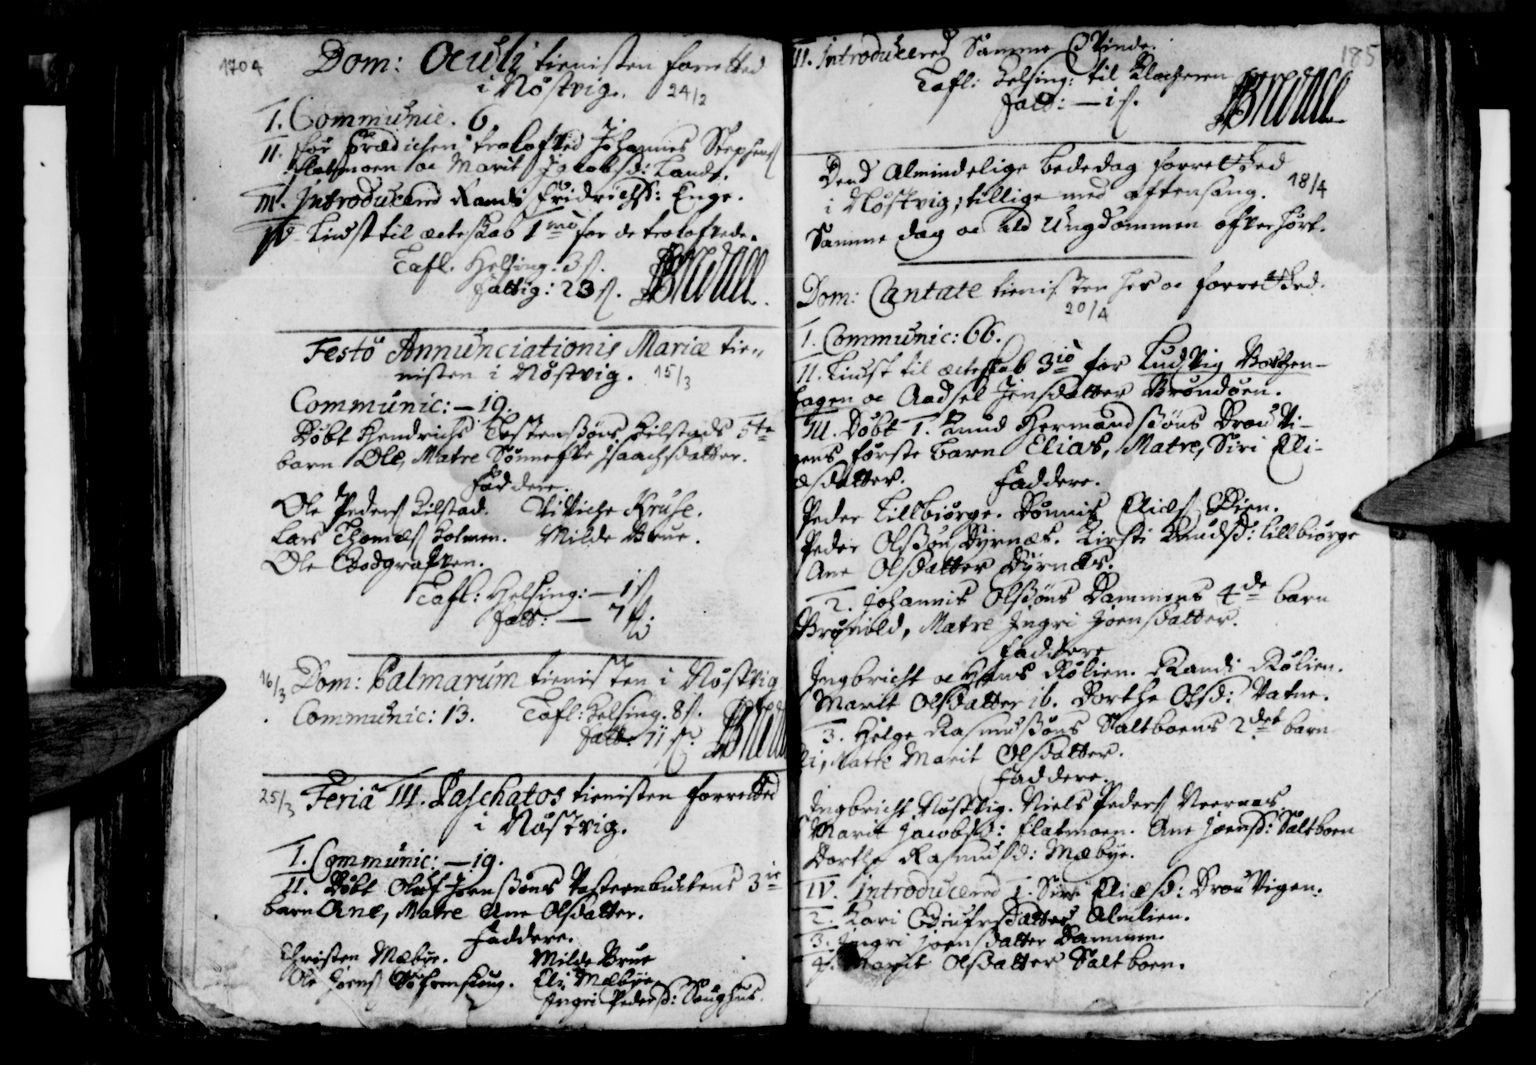 1704
Dom: Oculi tienisten forretted
i Nøstvig. 24/2
I. Communic. 6.
II. for Prædichen trolofved Johannes Stephens
Flatmoen oc Marit Jacobsd: Lands.
III. Introducered Randi Fridrichs: Enge.
IV. Liust til ecteskab 1mo for de trolofvede.
Tafl. Helsing: 3 s.
fattig: 23 s.
Festo Annunciationis Mariæ tien
nisten i Nøstvig. 15/3
Communic: — 19.
Døbt Hendrichs Tostensøns Kilstads 5te
barn Ole, Matre Sønnefve Isaachsdatter.
Faddere.
Ole Peders Kilstad. Viviche Kruse.
Lars Thomæs Holmen. Milde Brue.
Ole Godgrafven.
Tafl: Helsing: — 1 s
fatt: — 7 s.
16/3 Dom: Palmarum tienisten i Nøstvig
Communic: 13. Tafl: Helsing. 8 s.
fatt: 11 s.
25/3 Feria III. Paschatos tienisten forretted
i Nøstvig.
I. Communic: — 19.
II. Døbt Oluf Joensøns 3ie
barn Ane, Matre Ane Olsdatter.
Faddere.
Christen Mæbye. Milde Brue
Ole Joens Eli Mæbye
Ingri Pedersd: Saughus.
185
II. Introducered Samme Qvinde.
Tafl: Helsing: til Klocheren
fatt: — 1 s.
Dend Almindelige bededag forretted
i Nøstvig; tillige med aftensang. 18/4
Samme dag oc ald Ungdommen ofverhørt.
Dom: Cantate tienisten her oc forretted.
20/4
I. Communic: 66.
II. Liust til ecteskab 3io for Ludvig
hagen oc Aadsel Jensdatter Brøndøen.
III. Døbt 1. Knud Hermandsøns Drau Vi-
gens første barn Elias, Matre, Siri Eli-
æsdatter. Faddere.
Peder Lillbiørge. Dønnis Eliæs Øien.
Peder Olsøn Dyrnæs. Kirsti Knudsd: Lillbiørge
Ane Olsdatter Dyrnæs.
2. Johannis Olsøns Dammens 4de barn
Brynild, Matre Ingri Joensdatter.
Faddere
Ingbricht oc Hans Rølien. Randi Rølien.
Marit Olsdatter ib. Dorthe Olsd: Vatne.
3. Helge Rasmussøns Saltboens 2det barn
Matre Marit Olsdatter.
Faddere.
Ingbricht Nøstvig. Niels Peders Neernæs.
Marit Jacobsd: Flatmoen. Ane Joensd: Saltboen
Dorthe Rasmusd: Mæbye.
IV. Introducered 1. Siri Eliæsd: Drau Vigen.
2. Kari Almlien.
3. Ingri Joensdatter Dammen.
4. Marit Olsdatter Saltboen.